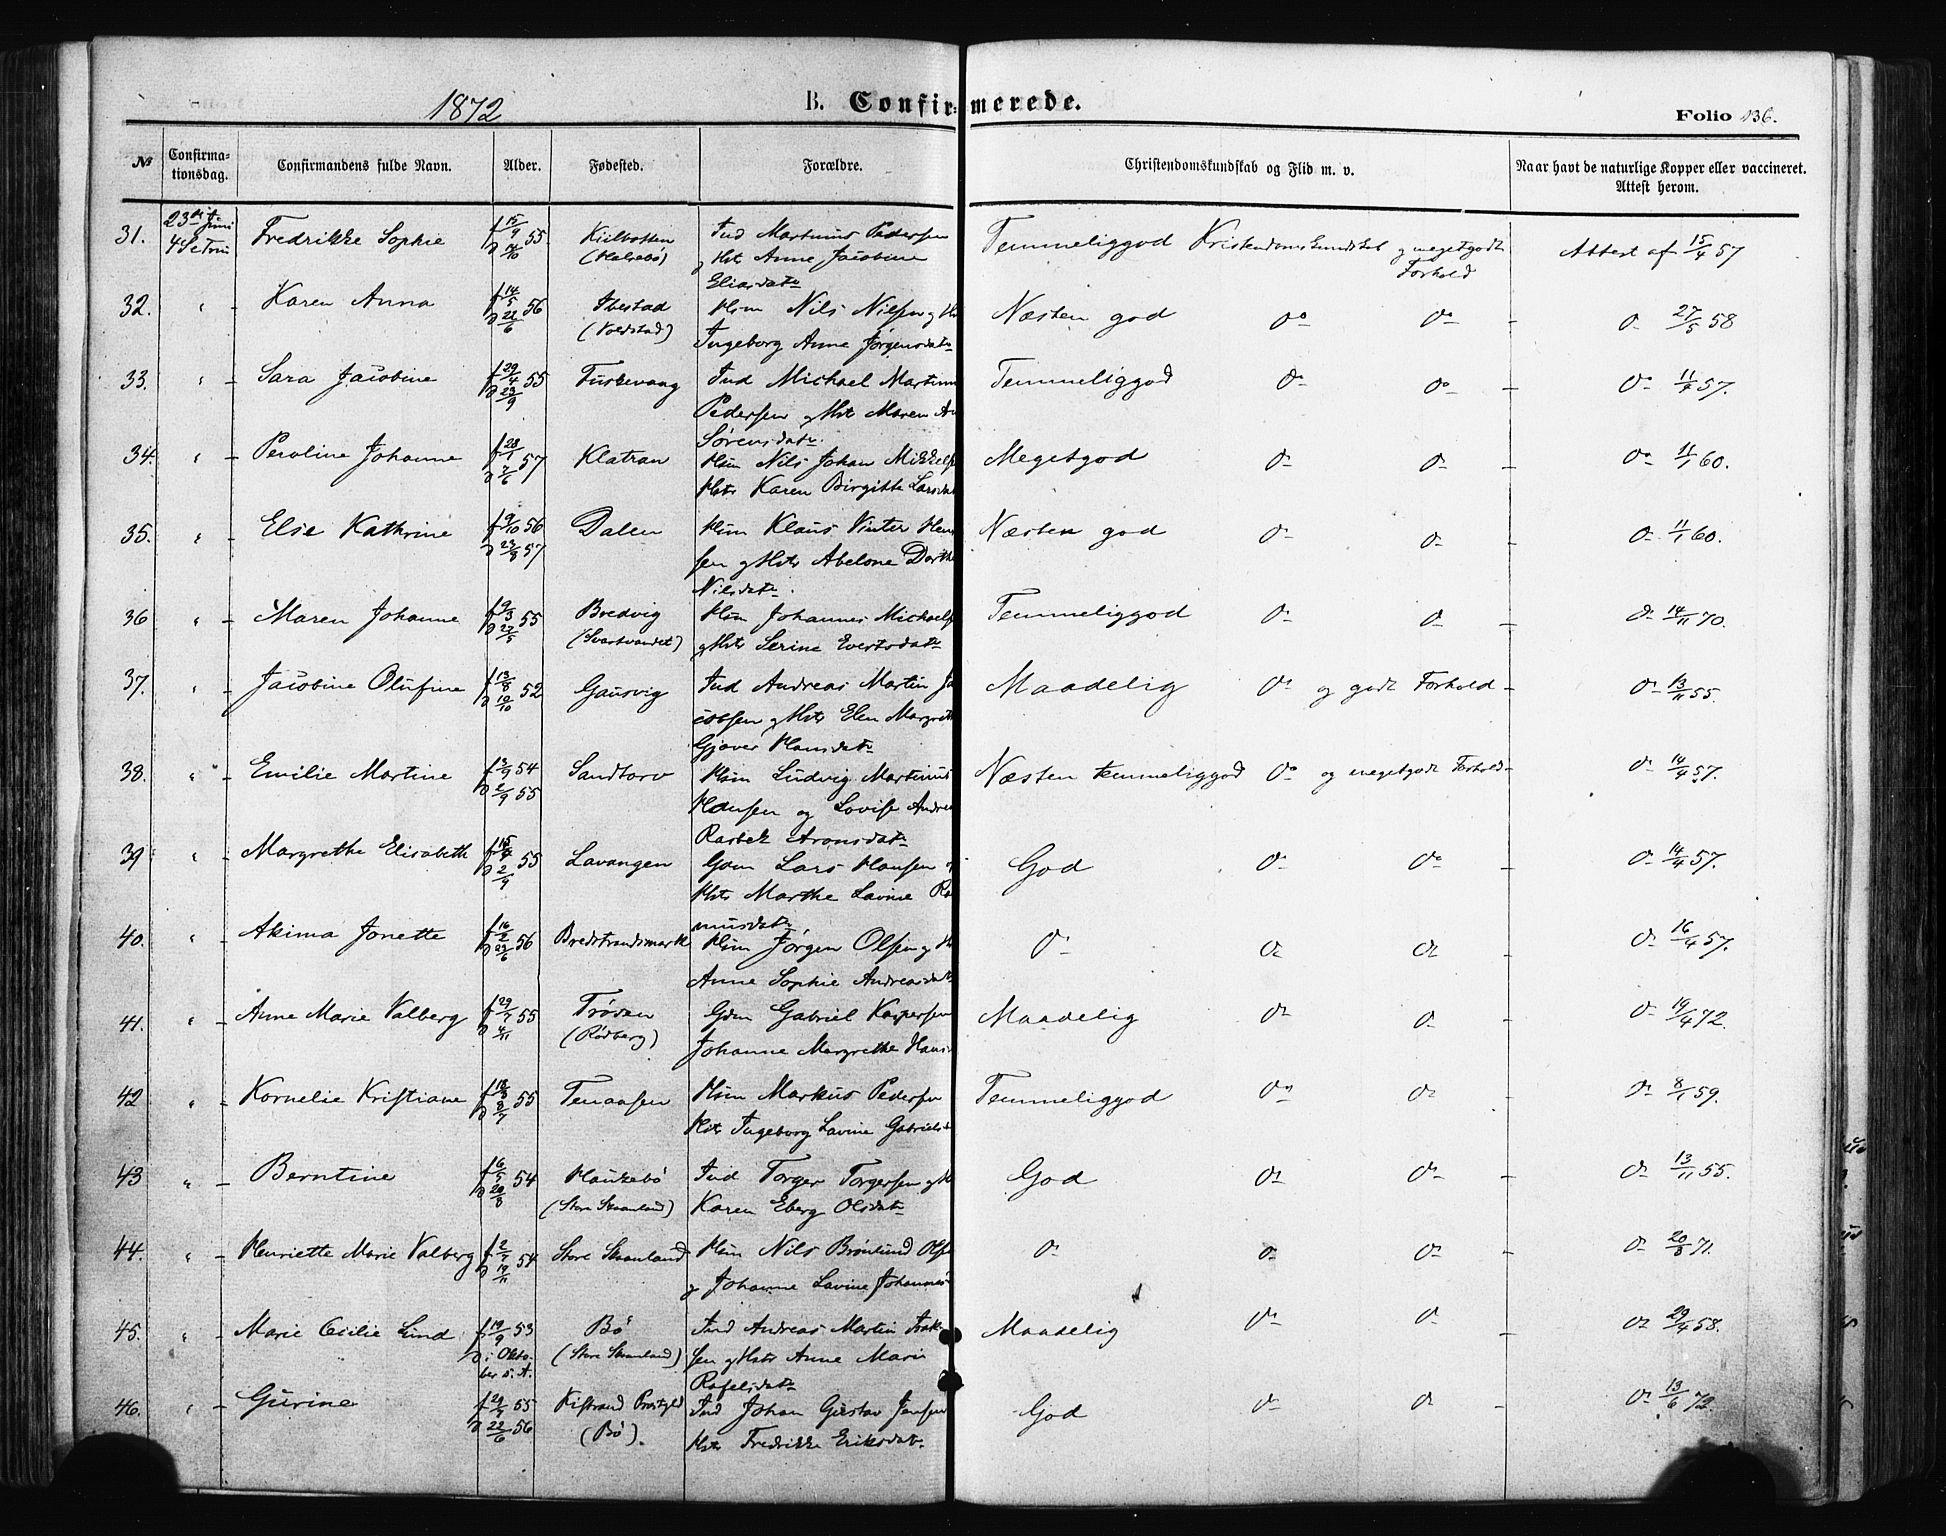 1872
B. Confirmerede.
Folio 136.
№ Confirma-tionsdag. Confirmandens fulde Navn. Alder. Fødested. Forældre. Christendomskundskab og Flid m. v. Naar havt de naturlige Kopper eller vaccineret. Attest herom.
31. 23de Juni 4 Se Trin Fredrikke Sophie f 15/9 55 Kiilbotten Ind Martinus Pedersen Temmeliggod Kristendomskundskab og megetgodt Forhold Attest af 15/4 57
og Hst Anne Jacobine
Eliasdatr
32. " - Karen Anna f 14/5 56 D 22/6 Ibestad Hsm Nils Nilsen og Næsten god Do Do - D 27/5 58
Ingeborg Anne Jørgensdatr
33. " - Sara Jacobine f 29/4 55 D 23/9 Fuskevaag Ind Michael Martinus Temmeliggod Do Do - Do 57.
Pedersen og Hst Maren
Sørensdatr.
34. " - Peroline Johanne f 28/1 57 D 7/6 Klatran Hsm Nils Johan Mikkels Megetgod Do Do - Do 11/1 60.
Hst Karen Birgitte Larsdat
35. " Else Kathrine f 9/10 56 D 23/8 57 Dalen Hsm Klaus Vinter Næsten god Do Do - Do 11/1 60.
sen og Hst Abelone Dorthe
Nilsdatr.
36 " - Maren Johanne f 9/3 55 D 27/5 Bredvig (Svartvandet) Hsm Johannes Michaels Temmeliggod Do Do - Do 14/11 70.
og Hst Serine Evertsdatr
37. " - Jacobine Olufine f 13/8 52 D 10/10 Gausvig Ind Andreas Martin Ja Maadelig Do og godt Forhold - Do 13/11 55.
cobsen og Hst Elen Margrethe
Gjøver Hansdatr
38. " - Emilie Martine f 3/9 54 D 2/9 55 Sandtorv Hsm Ludvig Martinus Næsten temmeliggod Do og megetgodt Forhold - Do 14/4 57.
Hansen og Lovise Andrea
Rasbek Aronsdatr
39 " - Margrethe Elisabeth 55 D 2/9 Lavangen Gdm Lars Hansen God Do Do - Do 14/4 57.
Hst Marthe Lavine Ras
musdatr
40. " - Akima Jonette f 16/2 56 D 22/6 Bredstrandsmark Hsm Jørgen Olsen og Do Do Do - Do 16/4 57.
Anne Sophie Andreasdatr
41. " - Anne Marie Valberg f 29/7 55 D 4/11 Trøsen (Rødberg) Gdm Gabriel Kaspersen Maadelig Do Do - Do 19/4 72.
Johanne Margrethe Hans
42 " - Kornelie Kristiane f 18/3 55 D 8/7 Tenaasen Hsm Markus Pedersen Temmeliggod Do Do - Do 8/1 59.
Hst Ingeborg Lavine Gabriels
43 " - Berntine f 6/5 54 D 20/8 Haukebø (Store Skaanland) Ind Torger Torgersen og God Do Do - Do 13/11 55.
Karen Eberg Olsdatr
44. " - Henriette Marie Valberg f 2/7 54 D 19/11 Store Skaanland Hsm Nils Brønlund Ols Do Do Do - Do 20/8 71.
og Johanne Lavine Johannes
45. " - Marie Cecilie Lund f 19/9 53 D i Okto-ber s. A. Bø (Store Skaanland) Ind Andreas Martin Isak- Maadelig Do Do - Do 29/4 58.
sen og Hst Anne Marie
Rafelsdatr
46. " - Gurine 55 D 22/6 56 Kistrand Prestgjeld (Bø). Ind Johan Gustav Jensen God Do Do - Do 13/6 72.
Hst Fredrikke Eriksdat.